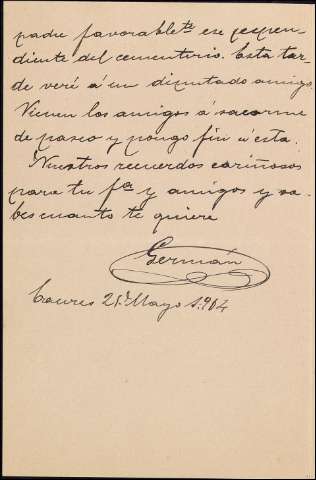 padre favorable.te ese espen-
diente del cementerio. Esta tar-
de veré á un diputado amigo.
Vienen los amigos á sacarme
de paseo y pongo fin á esta.
Nuestros recuerdos cariñosos
para tu fa. y amigos y sa-
bes cuanto te quiere
Germán
21 Mayo 1.904